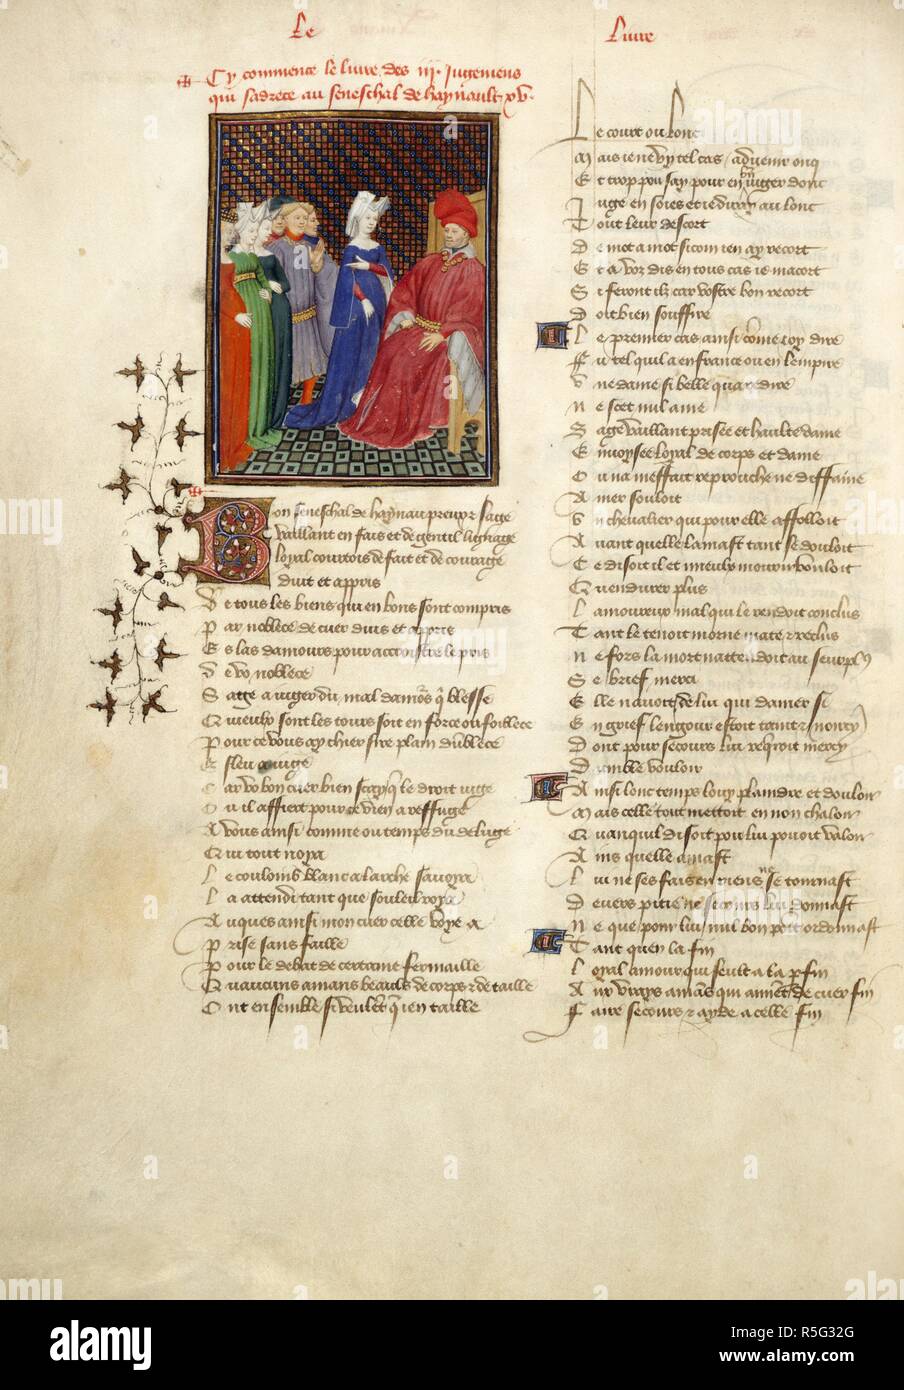 Le
Livre
Cy commence le livre des iij. Jugemens
qui sadrece au seneschal de haynault xv.
Bon seneschal de haynau preux & sage
Vaillant en fais et de gentil lignage
Loyal courtois de fait et de courage
Duit et appris
De tous les biens qui en bons sont compris
Par noblece de cuer duis et appris
Es las damours pour accroistre le pris
De vo noblece
Sage a iuger du mal damors q blesse
Qui eulx sont les tours soit en force ou foiblece
Pour ce vous ay chier sire plain dumblece
Esleu a iuge
Car vo bon cuer bien scay q le droit iuge
Ou il affiert pour ce vien a reffuge
A vous ainsi comme ou temps du deluge
Qui tout noya
Le coulons blanc a larche savoya
La attendi tant que souleil roya
Auques ainsi mon cuer celle voye a
Prise sans faille
Pour le debat de certaine fermaille
Quaucuns amans beauls de corps & de taille
Ont ensemble si veulent q en taille
Le court ou lonc
Mais ie ne vy tel cas advenir onq
Et trop pou say pour en bn iuger donc
Juge en soies et ie diray au lonc
Tout leur descort
De mot a mot si com ien ay recort
Et a voz dis en tous cas ie macort
Si feront ilz car vostre bon recort
Doit bien souffire
Le premier cas ainsi come ioy dire
Fu tel quil a en france ou en lempire
Une dame si belle qua redire
Ne scet nul ame
Sage vaillant prisee et haulte dame
Envoysee loyal de corps et dame
Ou na meffait reprouche ne diffame
Amer souloit
Un chevalier qui pour elle affolloit
Avant quelle lamast tant se douloit
Ce disoit il et mieulx mourir vouloit
Quendurer plus
Lamoureux mal qui le rendoit conclus
Tant le tenoit morne mate & reclus
Ne fors la mort nattendoit au seurplus
Se brief merci
Elle navoit de lui qui damer si
En grief lengour estoit taint & noircy
Dont pour secours lui requeroit mercy
Dumble vouloir
Ainsi lonc temps louy plaindre et douloir
Mais celle tout mettoit en non chaloir
Quanquil disoit pou lui pouoit valoir
Ains quelle amast
Lui ne ses fais en riens ne se tournast
Devers pitie ne secours lui donnast
Ne que pour lui nul bon point ordonnast
Tant quen la fin
Loyal amour qui seult a la p fin
Aux vrays amans qui aiment de cuer fin
Faire secours & ayde a celle fin
alamy
Image ID: R5G32G
www.alamy.com